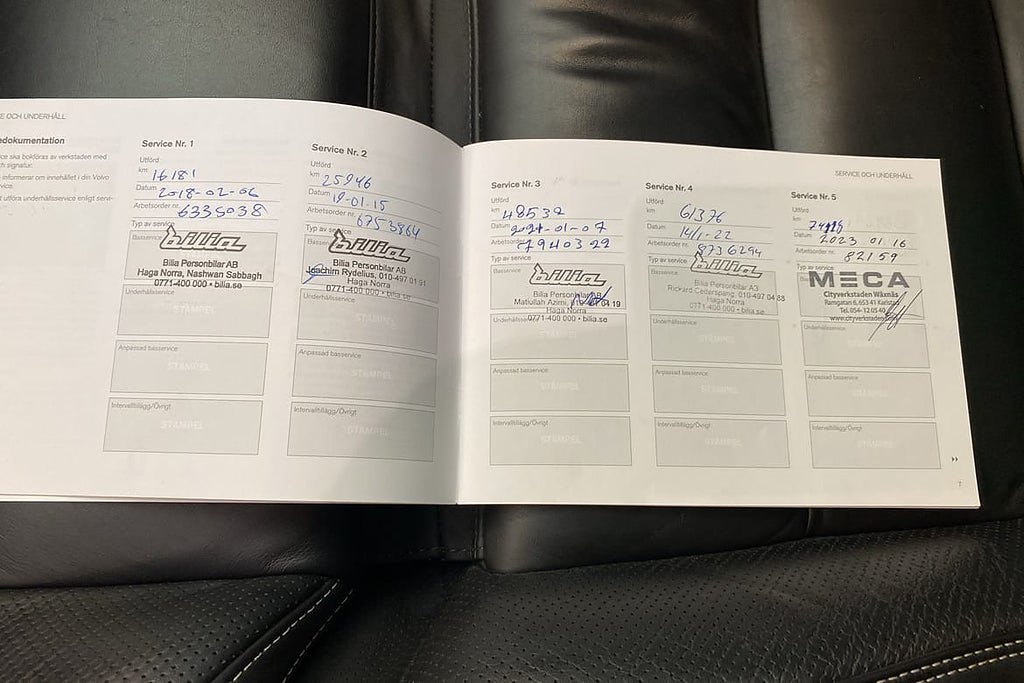 E OCH UNDERHÅLL
edokumentation
ce ska bokföras av verkstaden med
ch signatur.
informerar om innehållet i din Volvo
ervice.
t utföra underhållsservice enligt servi-
Service Nr. 1
Utförd
km 16181
Datum 2018-02-06
Arbetsorder nr. 6335038
Typ av service
Basservice
bilia
Bilia Personbilar AB
Haga Norra, Nashwan Sabbagh
0771-400 000 • bilia.se
Underhållsservice
STÄMPEL
Anpassad basservice
STÄMPEL
Intervalltillägg/Övrigt
STÄMPEL
Service Nr. 2
Utförd
km 25946
Datum 19-01-15
Arbetsorder nr. 6753864
Typ av service
Basservice
bilia
Bilia Personbilar AB
Joachim Rydelius, 010-497 01 91
Haga Norra
0771-400 000 • bilia.se
Underhållsservice
Anpassad basservice
STÄMPEL
Intervalltillägg/Övrigt
STÄMPEL
Service Nr. 3
Utförd
km 48532
Datum 2021-01-07
Arbetsorder 7940322
Typ av service
Basservice
bilia
Bilia Personbilar AB
Matiullah Azimi, 04 19
Haga Norra
0771-400 000 • bilia.se
Underhållsservice
Anpassad basservice
STÄMPEL
Intervalltillägg/Övrigt
STÄMPEL
Service Nr. 4
Utförd
km 61376
Datum 14/1-22
Arbetsorder nr. 8736294
Typ av service
Basservice
bilia
Bilia Personbilar AB
Rickard Cederspang, 010-497 04 68
Haga Norra
0771-400 000 • bilia.se
Underhållsservice
STÄMPEL
Anpassad basservice
STÄMPEL
Intervalltillägg/Övrigt
STÄMPEL
SERVICE OCH UNDERHÅLL
Service Nr. 5
Utförd
km
Datum 2023 01 16
Arbetsorder nr. 82159
Typ av service
MECA
Cityverkstaden Wåxnäs
Ramgatan 6, 653 41 Karlstad
Tel. 054-12 05 40
www.cityverkstaden
Underhållsservice
STÄMPEL
Anpassad basservice
STÄMPEL
Intervalltillägg/Övrigt
STÄMPEL
7